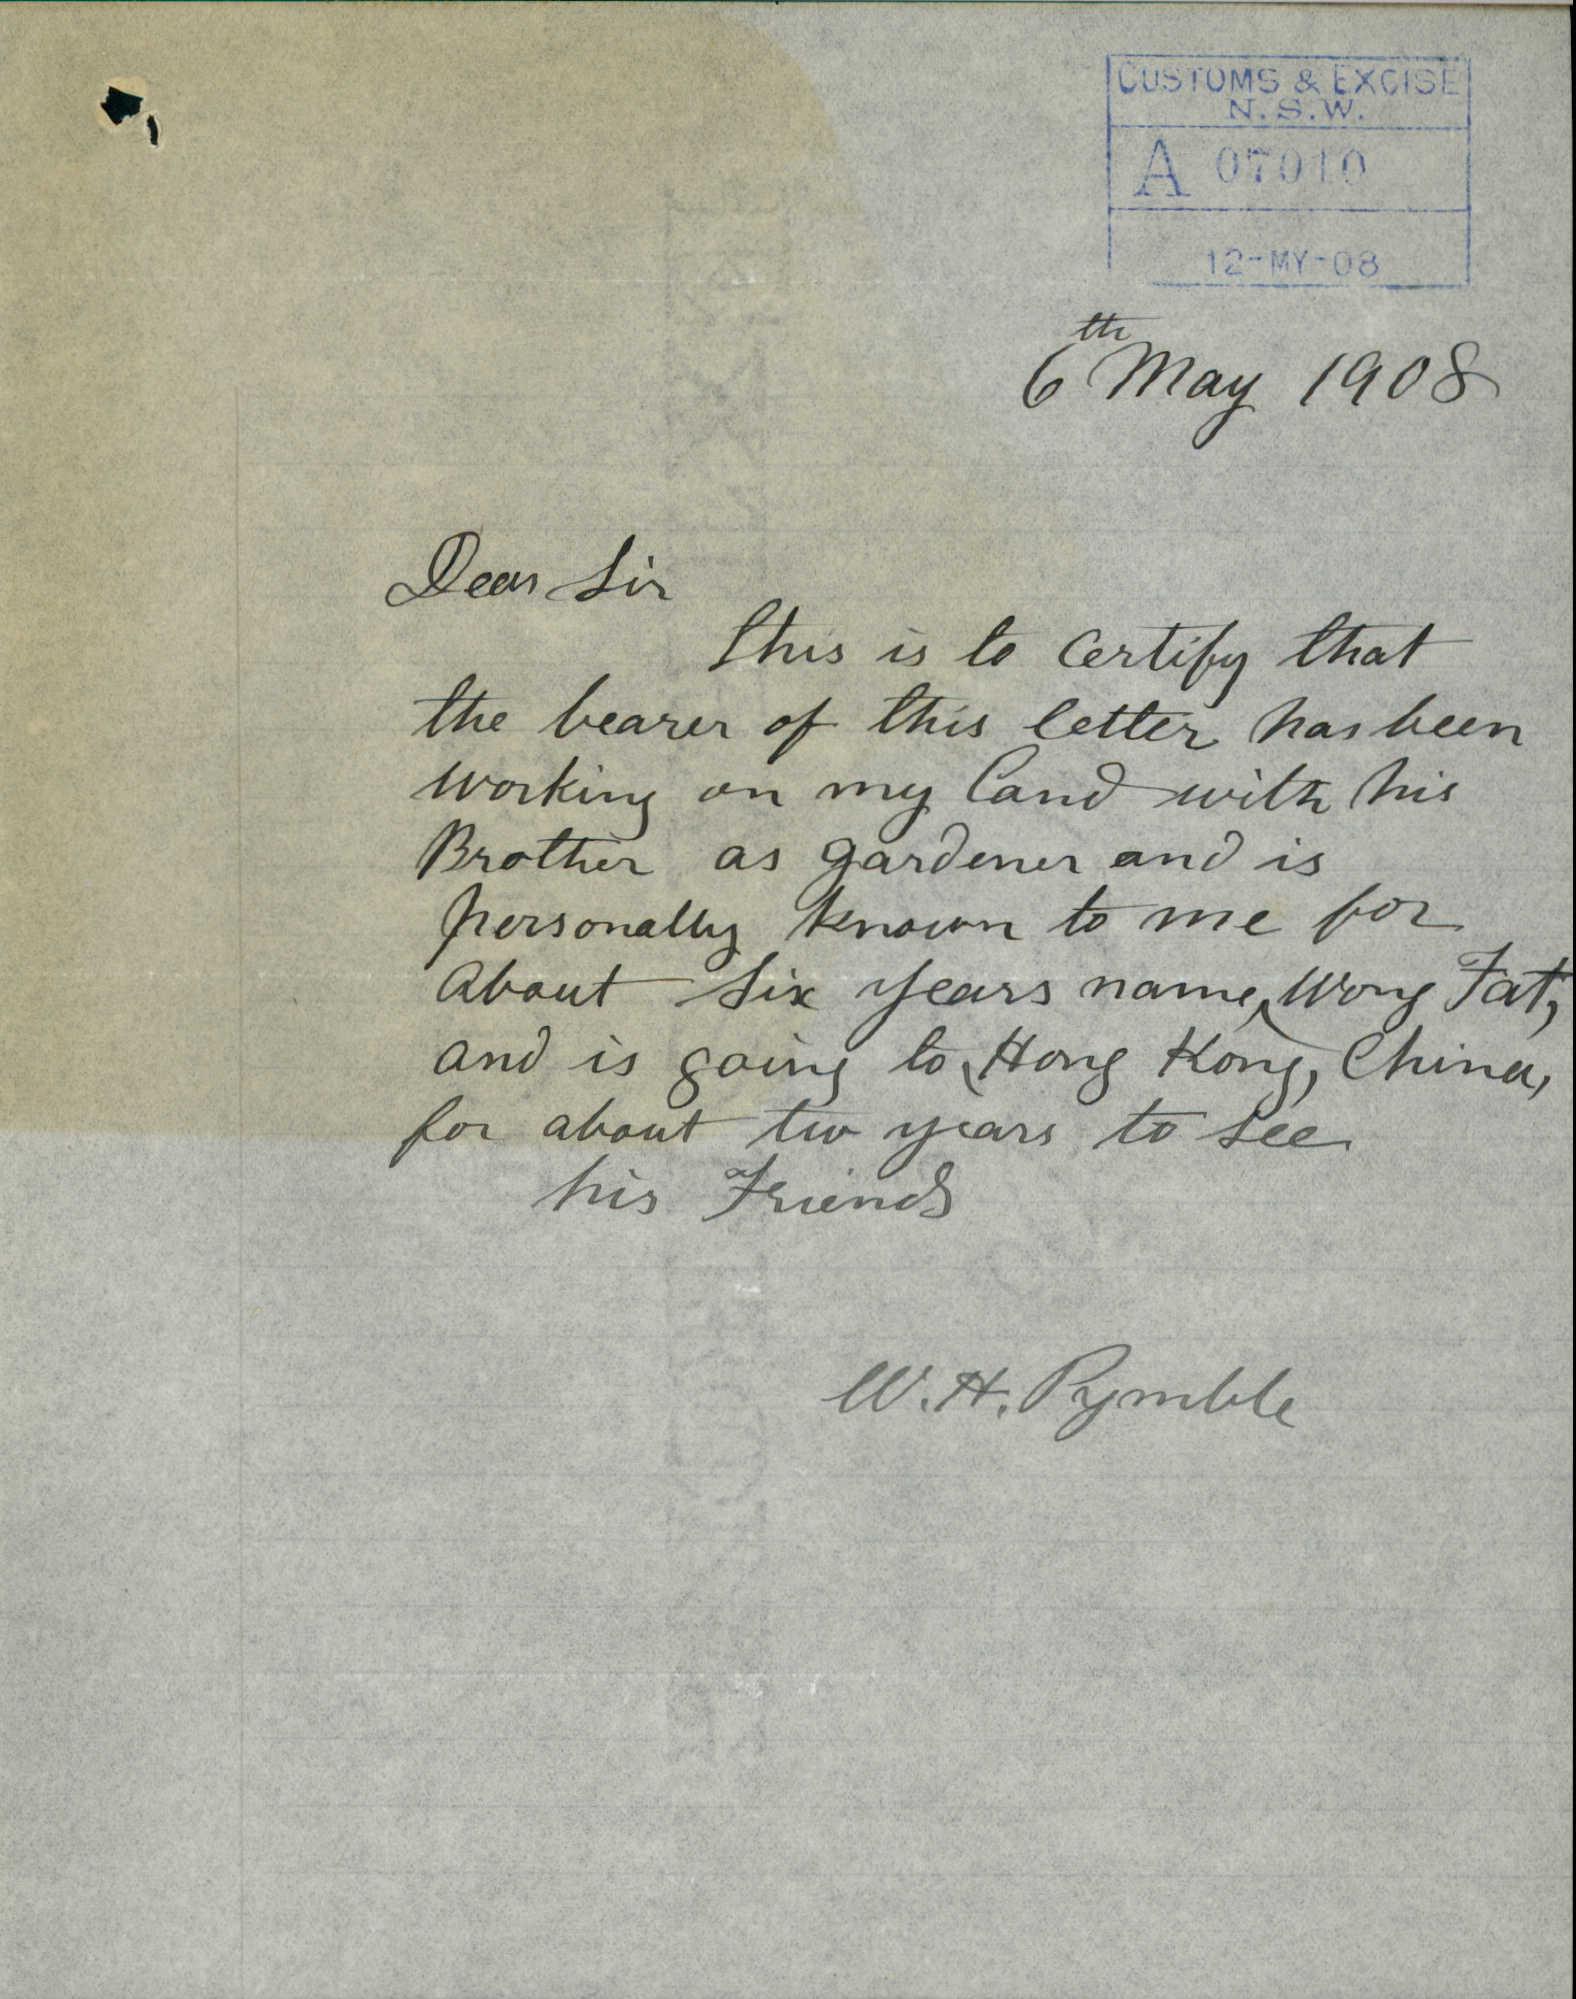 CUSTOMS & EXCISE
N.S.W.
A 07010
12-MY-08
6th May 1908
Dear Sir
This is to certify that
the bearer of this letter has been
working on my land with his
Brother as gardener and is
personally known to me for
about six years name, Wong Fat,
and is going to, Hong Kong, China,
for about two years to see
his Friends
W. H. Pymble